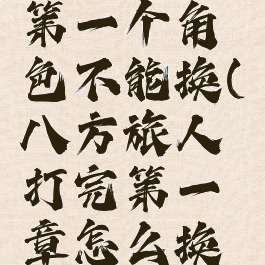 第一个角
色不能换(
八方旅人
打完第一
章怎么换